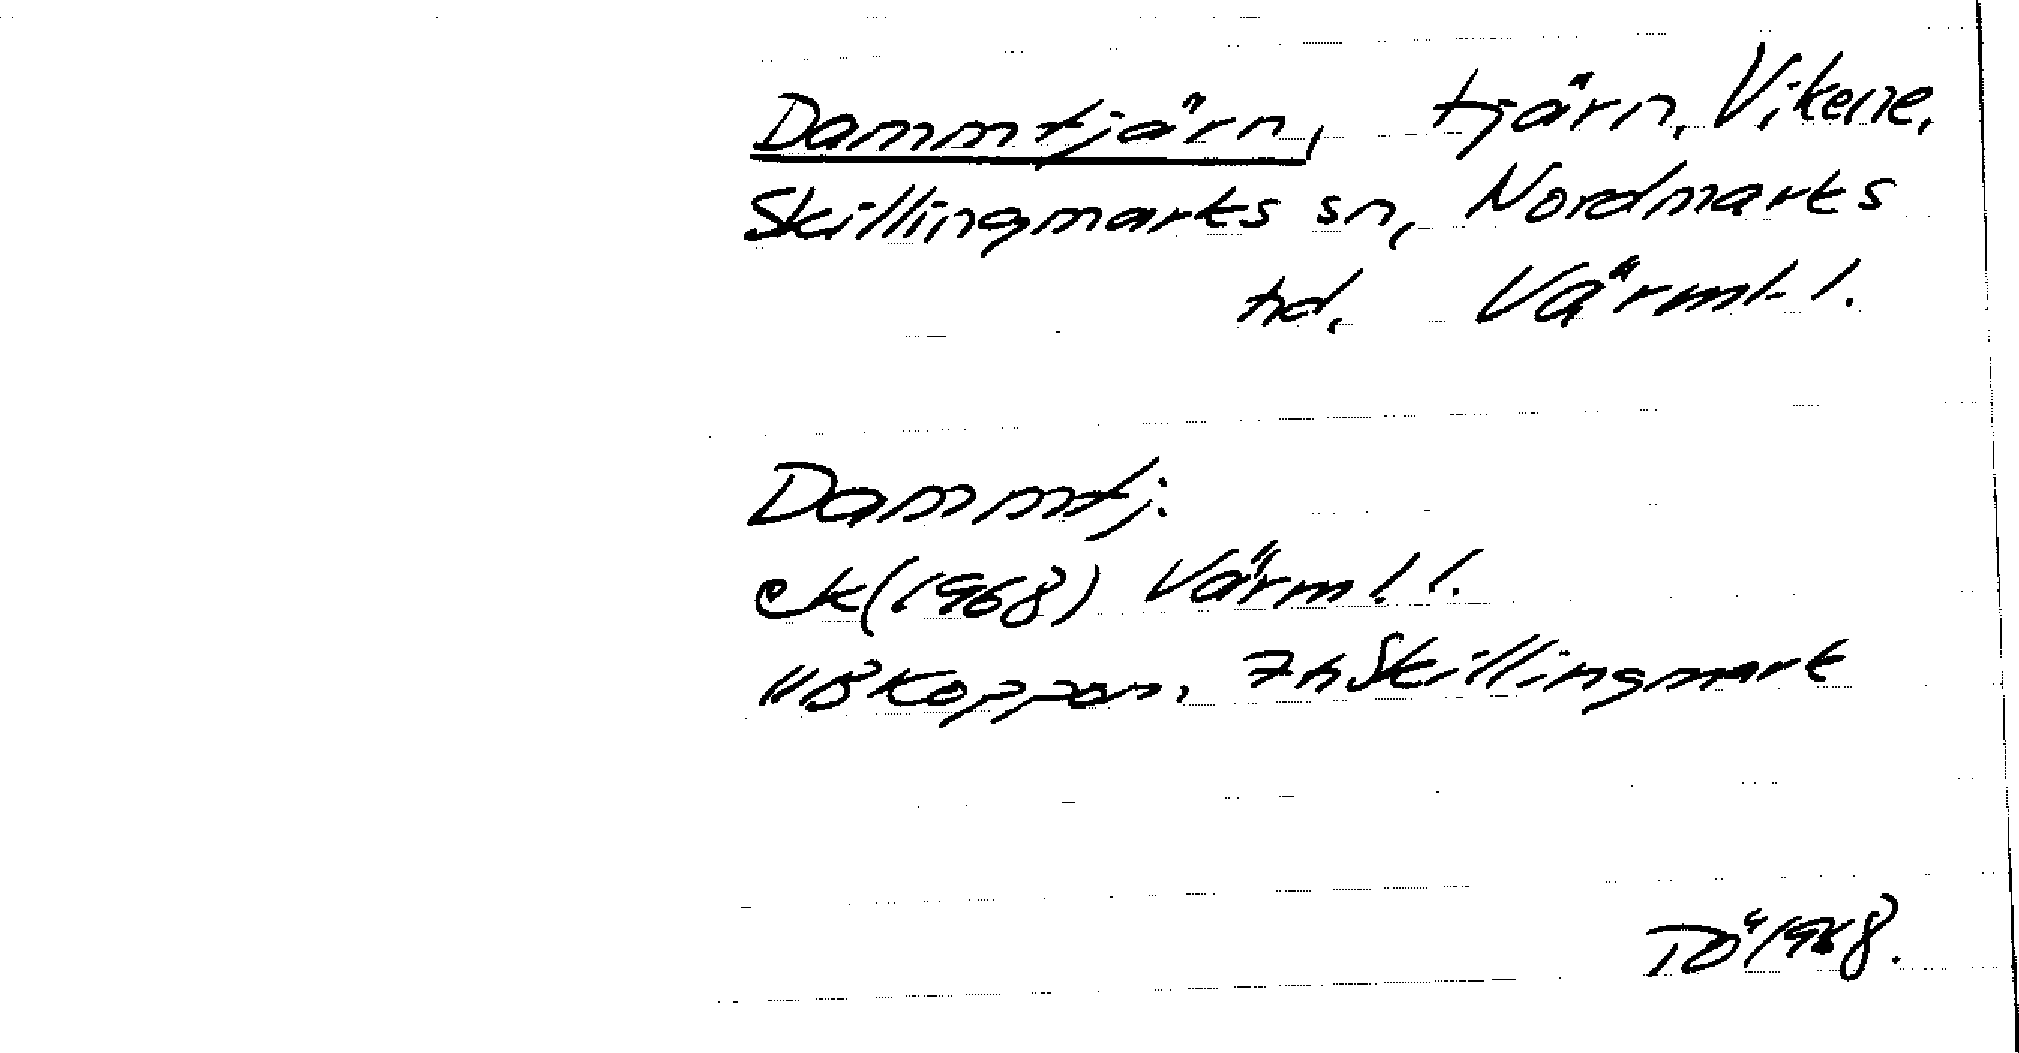 Dammtjärn, tjärn, Vikene,
Skillingmarks sn, Nordmarks
hd. Värml. l.
Dammtj.
ek (1968) Värml. l.
11B Koppom, 7h Skillingmark
TÖ 1968.